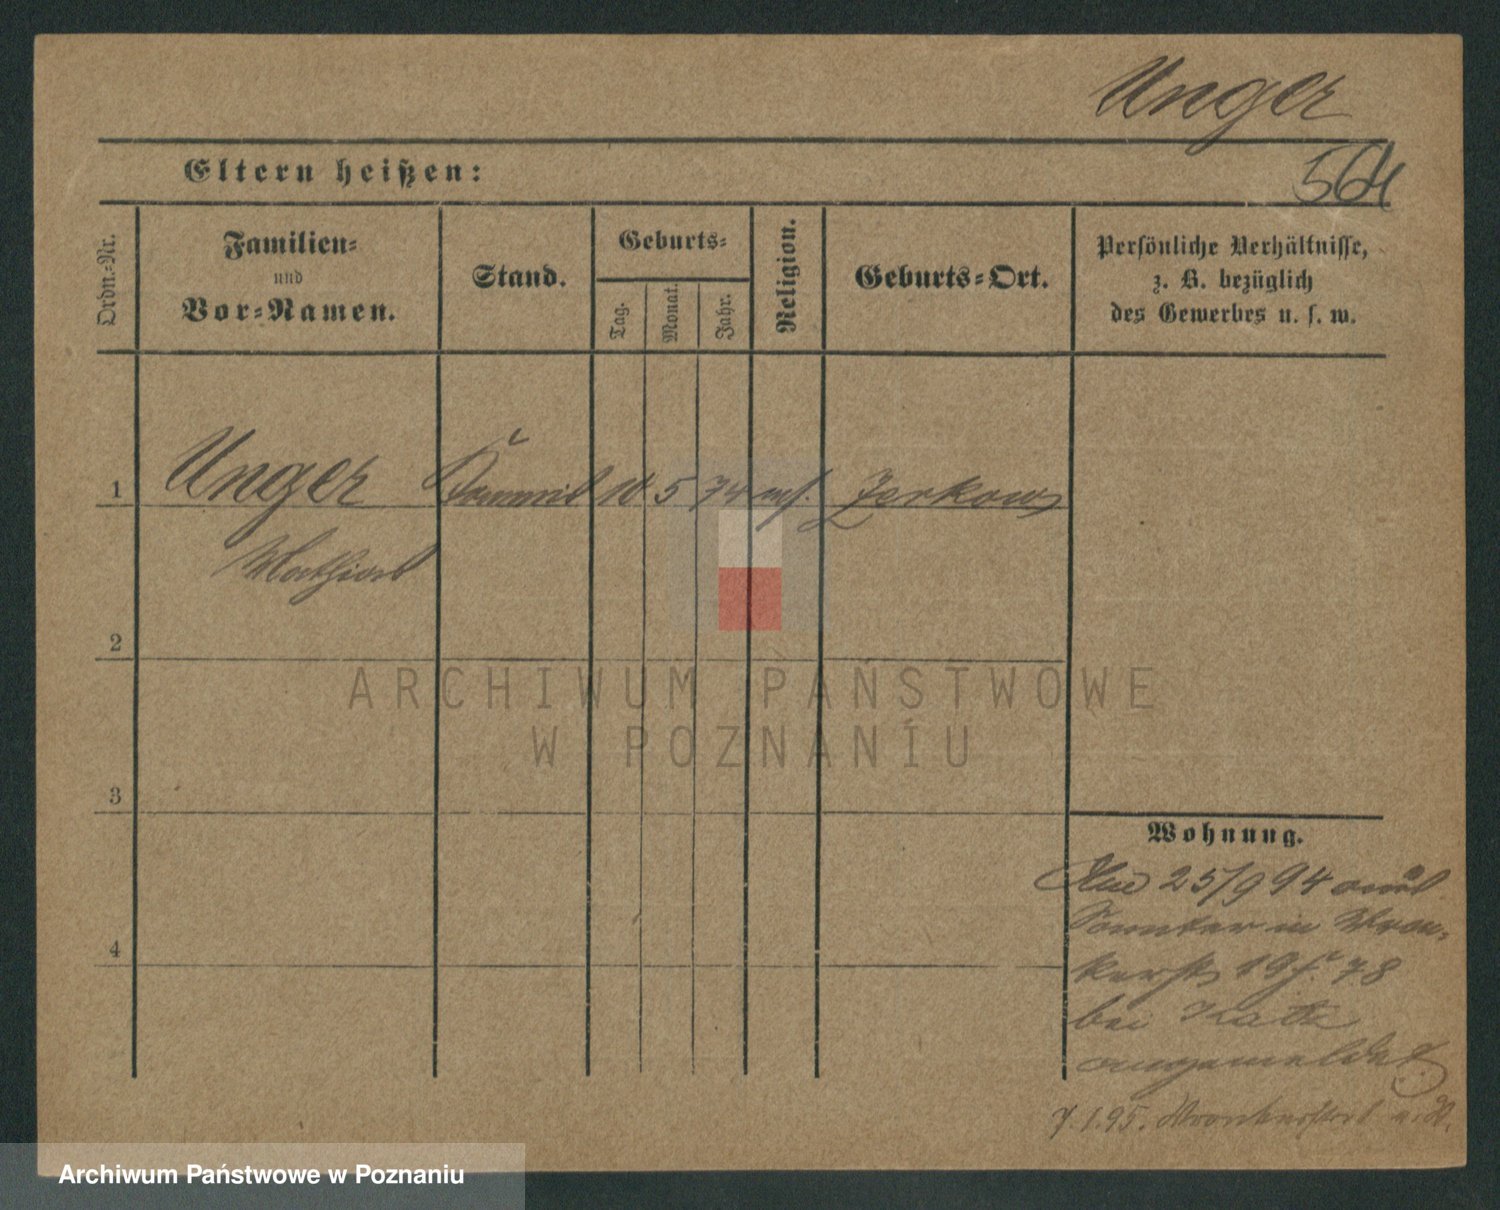 Unger
Eltern heißen:
564
Ordn.-Nr.
Familien-
und
Vor-Namen.
Stand.
Geburts-
Tag.
Monat.
Jahr.
Religion.
Geburts-Ort.
Persönliche Verhältnisse,
z. B. bezüglich
des Gewerbes u. s. w.
1 Unger Commis 10 5 74 mos. Zerkow
2
3
4
ARCHIWUM PAŃSTWOWE
W POZNANIU
Wohnung.
25/9 94
Samter in Wron-
kerstr 19 78
bei
angemeldet
7.1.95.
Archiwum Państwowe w Poznaniu